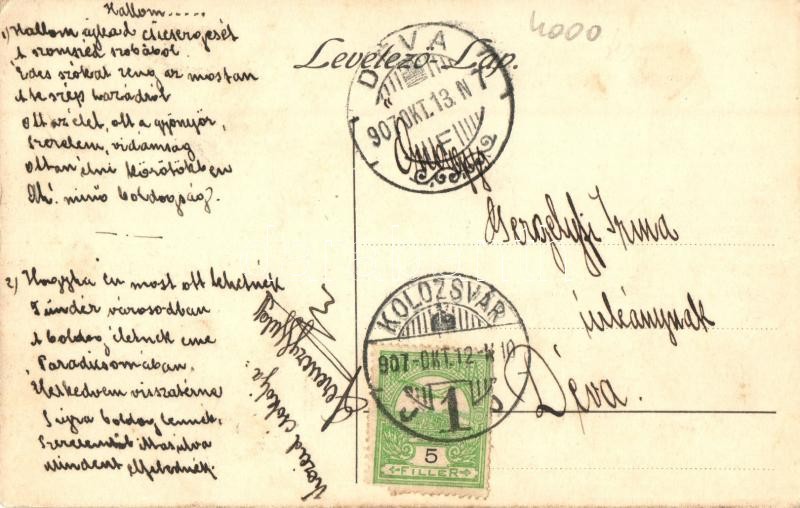 Hallom.....
1) Hallom ajkad csicsergését
A szomszéd szobából
Édes szókat zeng az mostan
A te szép hazádról
Ott az élet, ott a gyönyör,
Szerelem, vidámság
Ottan élni körötökben
Áh! minő boldogság?
2) Hogyha én most ott lehetnék
Tündér városodban
A boldog életnek eme
Paradicsomában,
Keskedvem visszatérne
S újra boldog lennék,
Szerelemtől
Mindent elfelednék.
Kezeid csókolja:
Ferenczy
Levelező-Lap.
DÉVA
907. OKT. 13. N 7
4000
Gergelyfi Irma
úrleánynak
Déva.
KOLOZSVÁR
907-OKT.12-N 10
1
5
FILLÉR